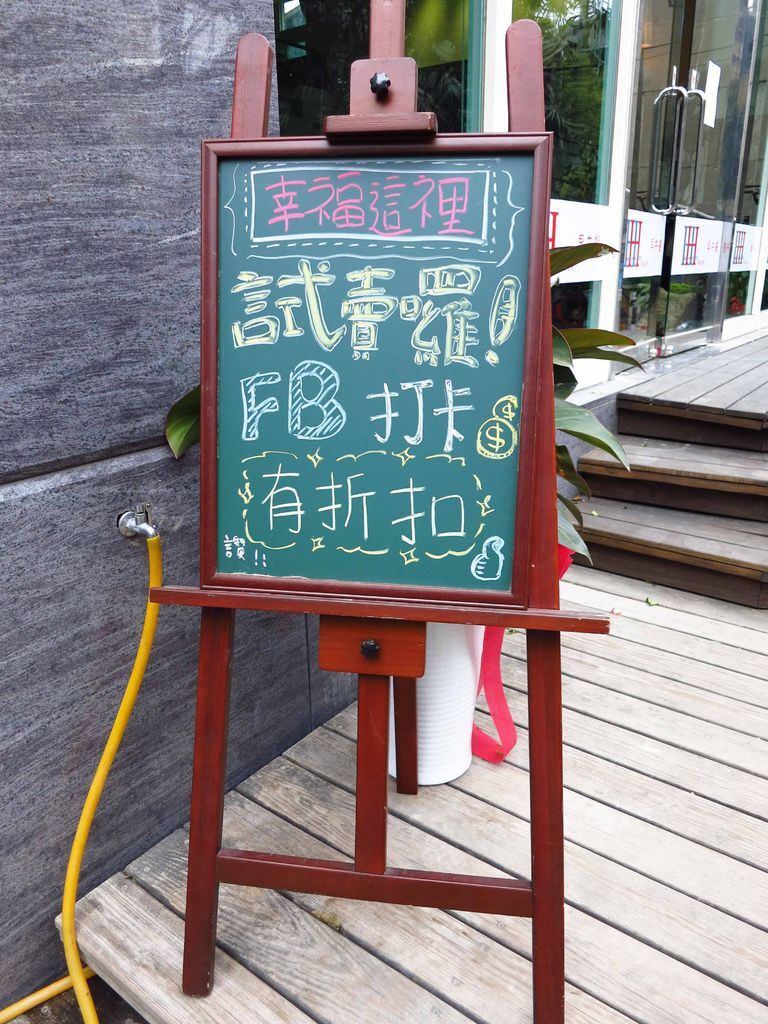 幸福這裡
試賣囉!
FB 打卡 $ $
有折扣
讚!!